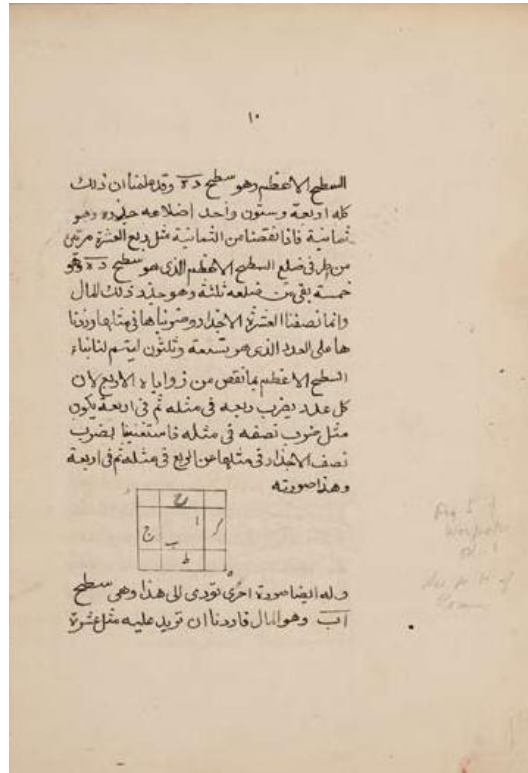 ١٠
السطح الاعظم وهو سطح د ه وقد علمنا ان ذلك
كله اربعة وستون واحد اضلاعه جذره وهو
ثمانية فاذا نقصنا من الثمانية مثل ربع العشرة مرتين
من طرفى ضلع السطح الاعظم الذى هو سطح د ه وهو
خمسة بقى من ضلعه ثلثة وهو جذر ذلك المال
وانما نصفنا العشرة الاجذار وضربناها فى مثلها وزدنا
ها على العدد الذى هو تسعة وثلثون ليتم لنا بناء
السطح الاعظم بما نقص من زواياه الاربع لان
كل عدد يضرب ربعه فى مثله ثم فى اربعة يكون
مثل ضرب نصفه فى مثله فاستغنينا بضرب
نصف الاجذار فى مثلها عن الربع فى مثله ثم فى اربعة
وهذا صورته
ح
ا
ج
ب
ط
ه
وله ايضا صورة اخرى تودى الى هذا وهى سطح
اب وهو المال فاردنا ان نزيد عليه مثل عشرة
Fig